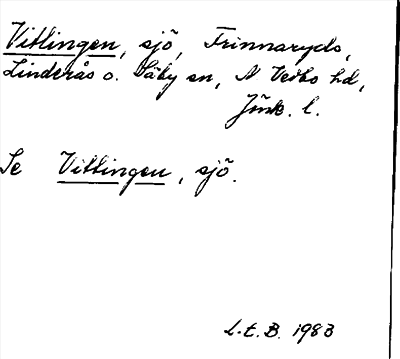 Vittlingen, sjö, Frinnaryds,
Linderås o. Säby sn, N Vedbo hd,
Jönk. l.
Se Vittlingen, sjö.
L.t.B. 1983